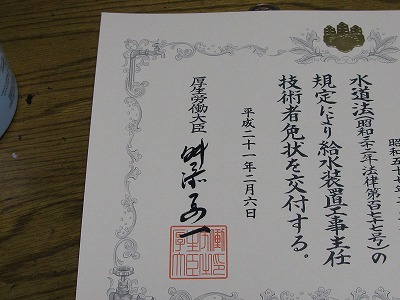 昭和五十
水道法(昭和三十二年法律第百七十七号)の
規定により給水装置工事主任
技術者免状を交付する。
平成二十一年二月六日
厚生労働大臣
舛添要一